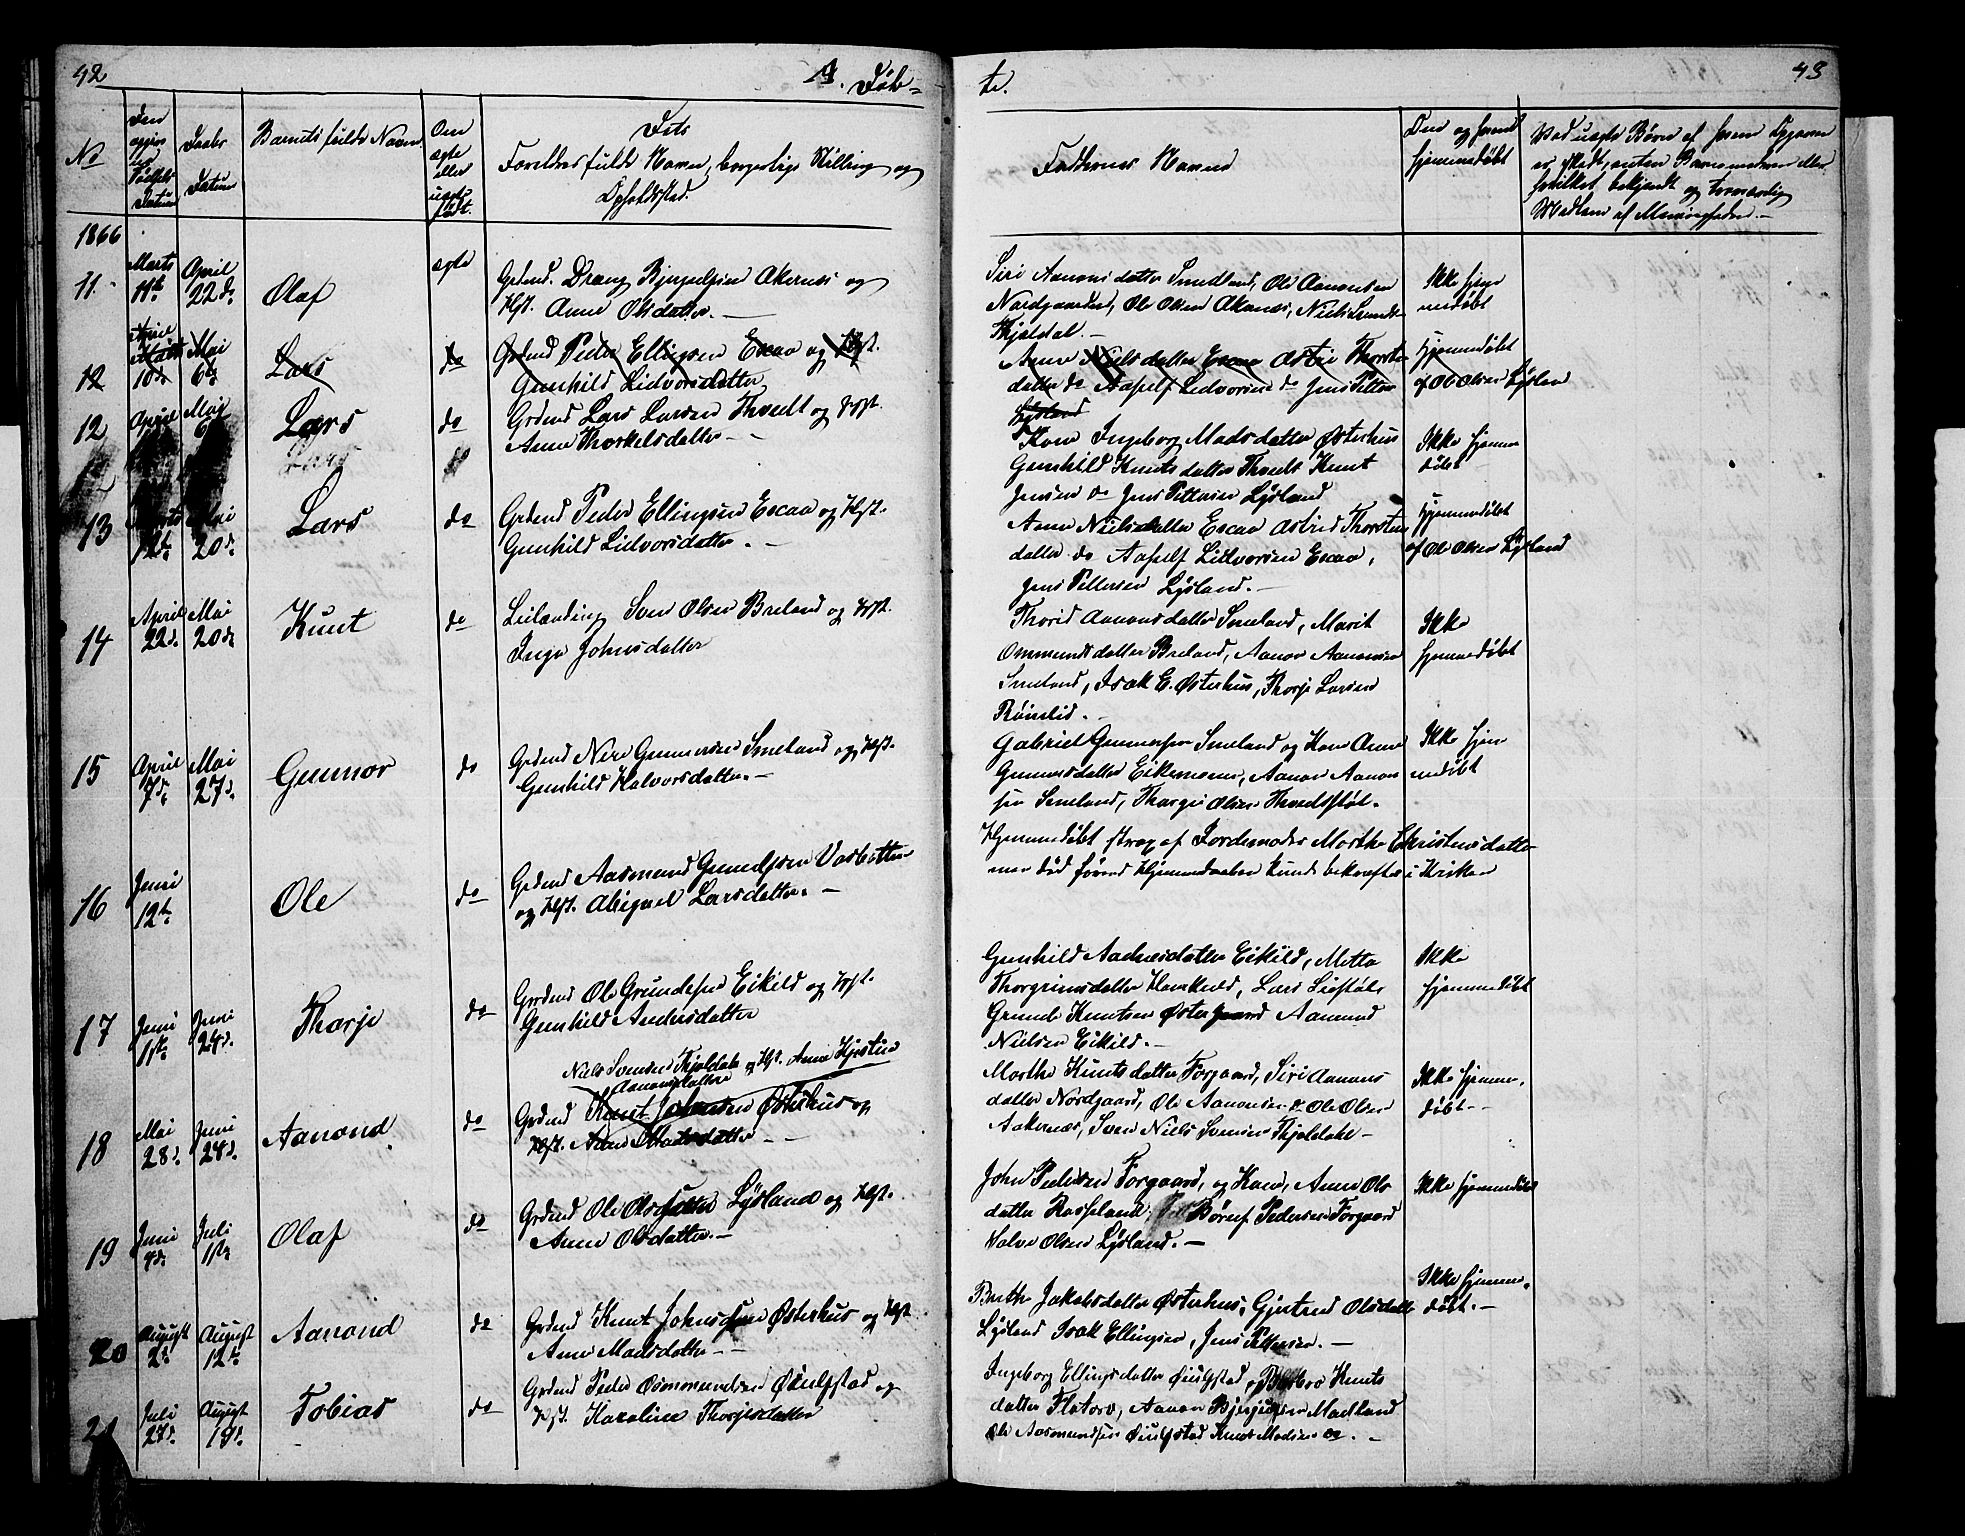 42
A. Føb-
No
Den
opgivne
Fødsels
Datum
Daabs
Datum
Barnets fulde Navn
Om
ægte
eller
uægte
født.
Dets
Forældres fulde Navn, borgerlige Stilling og
Opholdssted.
1866
11.
Marts
11te
April
22de
Olaf
ægte
Grdmd. Drang Bjugufsen Akernæs og
Hst. Anne Olsdatter.
12
April
Marts
10de
Mai
6te
Lars
do
Grdmd Peder Ellingsen Escaa og Hst.
Gunhild Lidvorsdatter
12
April
Mai
6te
Lars
do
Grdmd Lars Larsen Thvedt og Hst.
Anne Thorkelsdatter
Lars
13
Marts
12te
Mai
20de
Lars
do
Grdmd Peder Ellingsen Escaa og Hst.
Gunhild Lidvorsdatter.
14
April
22de
Mai
20de
Knut
do
Leilænding Sven Olsen Breland og Hst.
Inge Johnsdatter
15
April
7de
Mai
27de
Gunnor
do
Grdmd Nils Gunnersen Smeland og Hst.
Gunhild Halvorsdatter.
16
Juni
12te
Ole
do
Grdmd Aasmund Gundersen Vasbotten
og Hst. Abigael Larsdatter.
17
Juni
11te
Juni
24de
Thorje
do
Grdmd Ole Grundesen Eikild og Hst.
Gunhild Andersdatter
18
Mai
28de
Juni
24de
Aanond
do
Niels Svensen Kjeldale og Hst. Anne Kjestine
Aanonsdatter
Grdmd Knut Johnsen Østerhus og
Hst. Anne Madsdatter
19
Juni
4de
Juli
1ste
Olaf
do
Grdmd Ole Olsen Lysland og Hst.
Anne Olsdatter.
20
August
2de
August
12te
Aanond
do
Grdmd Knut Johnsen Østerhus og Hst.
Anne Madsdatter
21
Juli
27de
August
19de
Tobias
do
Grdmd Peder Osmundsen Øiulfstad og
Hst. Karoline Thorjesdatter
te.
43
Faddernes Navne
Om og hvem
hjemmedøbt
Ved uægte Børn af hvem Opgaven
er skedt, enten Barnemoderen eller
hvilket bekjendt og troværdig
Medlem af Menigheden.
Siri Aanonsdatter Smedland, Ole Aanonsen
Nordgaarden, Ole Olsen Akernæs, Niels Svends
Kjeldal.
Ikke hjem
medøbt
Anne Nielsdatter Escaa Astri Thorste
datter do Aasulf Lidvorsen do Jens Petter
Lysland
Hjemmedøbt
af Ole Olsen Lysland
Kone Ingeborg Madsdatter Østerhus
Gunhild Knutsdatter Thvedt Knut
Jensen do Jens Pettersen Lysland
Ikke hjemme
døbt
Anne Nielsdatter Escaa Astrid Thorsten
datter do Aasulf Lidvorsen Escaa,
Jens Pettersen Lysland.
Hjemmedøbt
af Ole Olsen Lysland
Thorid Aanonsdatter Smeland, Marit
Ommundsdatter Breland, Aanon Aanonsen
Smeland, Isak E. Østerhus, Thorje Larsen
Røinslid.
Ikke
hjemmedøbt
Gabriel Gunnersen Smeland og Kone Anne
Gunnersdatter Eikemoen, Aanon Aanon
sen Smeland, Thorgie Olsen Thvedtsstøl.
Ikke hjem
medøbt
Hjemmedøbt strax af Jordemoder Marthe Christensdatter
men død førend Hjemmedaaben kunde bekræftes i Kirken
Gunhild Andersdatter Eikild, Mette
Thorgrimsdatter Homkvæd, Lars Liestøl
Grunde Knutsen Østergaard Aamund
Nielsen Eikild.
Ikke
hjemmedøbt
Marthe Knutsdatter Forgaard, Siri Aanons
datter Nordgaard, Ole Aanonsen do Ole Olsen
Aakernæs, Sven Niels Svensen Kjeldale
Ikke hjemme
døbt
John Pedersen Forgaard, og Kone, Anne Ols
datter Rosseland, Børuf Pedersen Forgaard
Halvor Olsen Lysland.
Ikke hjemmedøbt
Berthe Jakobsdatter Østerhus, Gjertrud Olsdatter
Lysland Isak Ellingsen, Jens Pettersen.
Ikke hjemme
døbt.
Ingeborg Ellingsdatter Øiulfstad, Barbro Knuts
datter Flatoro, Aanon Bjugufsen Madland
Ole Aasmundsen Øiulfstad Knut Madsen do.